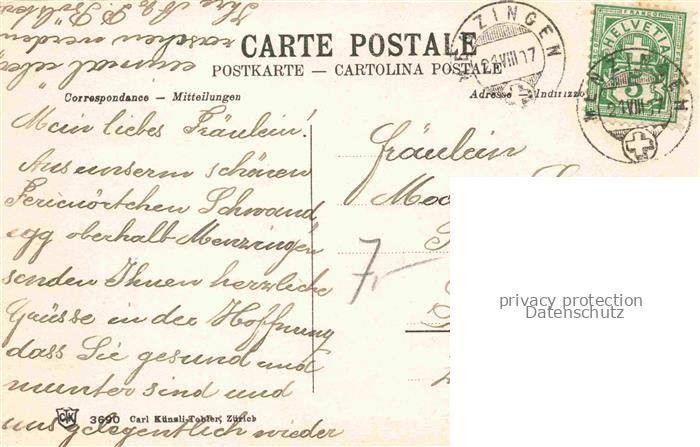 CARTE POSTALE
POSTKARTE — CARTOLINA POSTALE
Correspondance — Mitteilungen
Adresse — Indirizzo
MENZINGEN
HELVETIA
FRANCO
5
MENZINGEN
Mein liebes Fräulein!
Aus unserm schönen
Ferienörtchen Schwand,
egg oberhalb Menzingen
senden Ihnen herzliche
Grüsse in der Hoffnung
dass Sie gesund und
munter sind und
uns gelegentlich wieder
einmal
raschen werden
Ihre
Fräulein
7.-
privacy protection
Datenschutz
3690 Carl Künzli-Tobler, Zürich